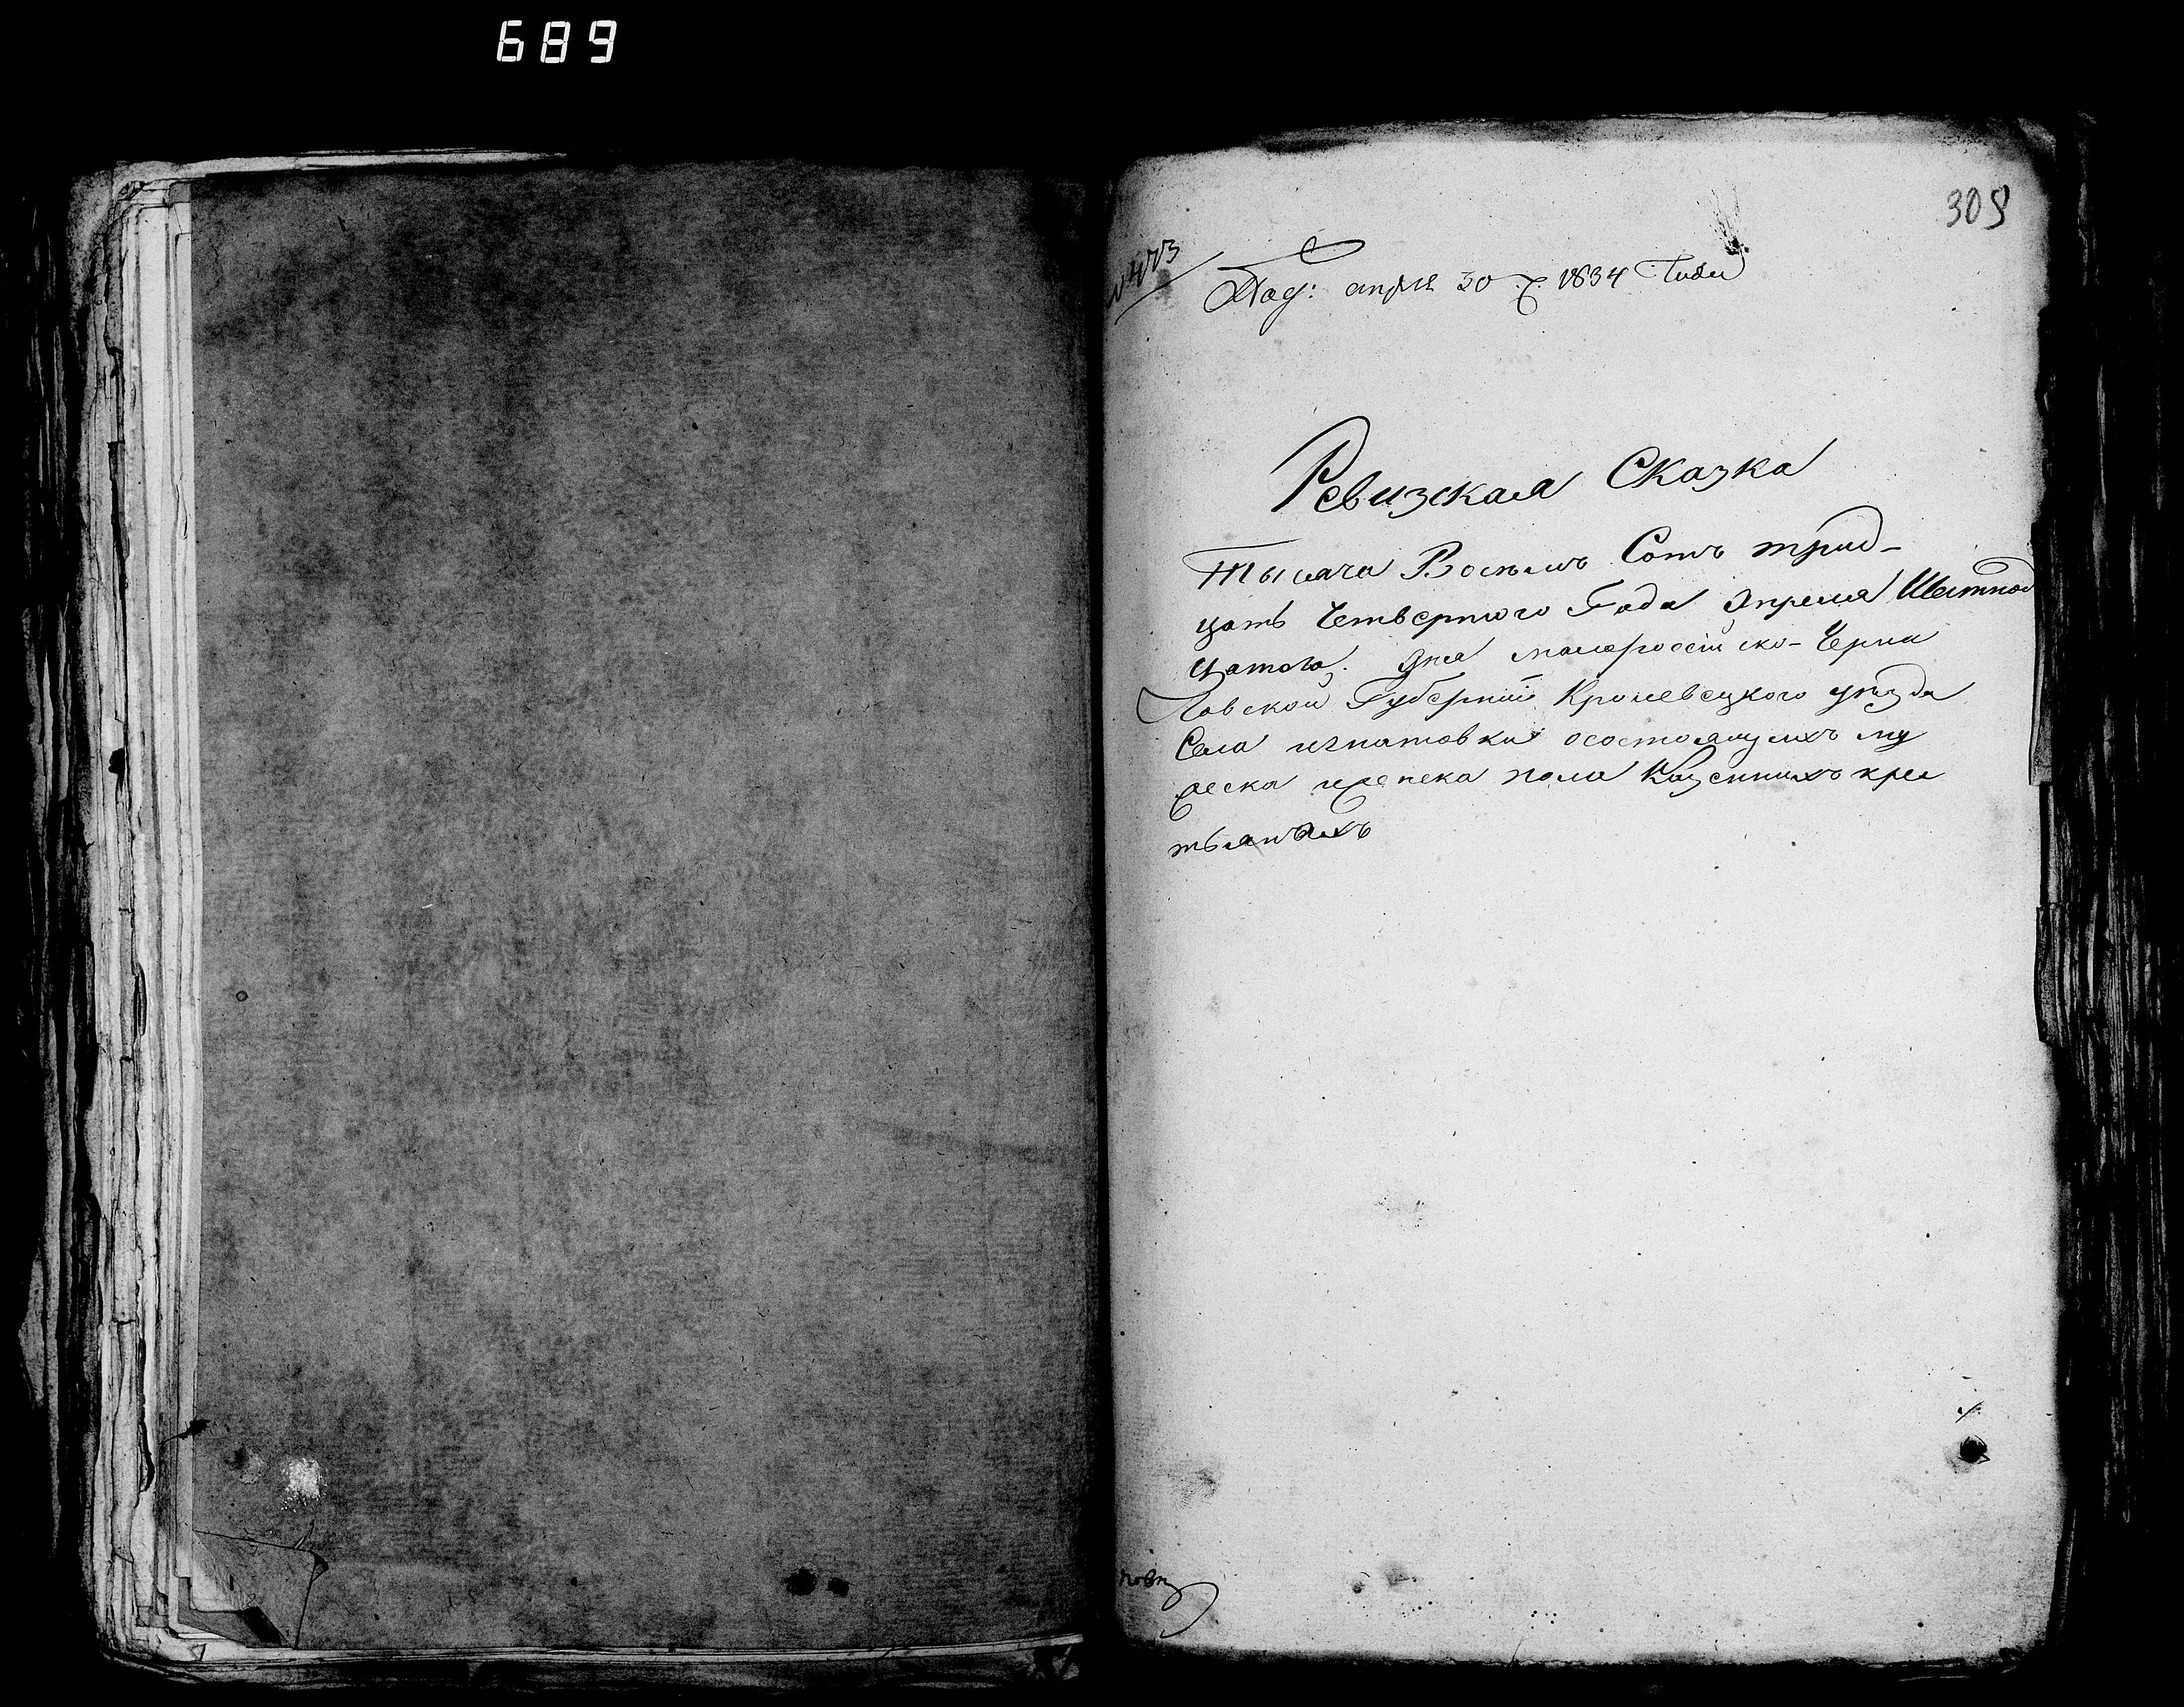 689
309
Под: апреля 30 д. 1834 Года
Ревизская Сказка
Тысяча Восемъ Сотъ трид-
цать Четвертого Года Апреля Шестнад
цатого. Дня малоросейско-Черни
говской Губернии Кролевецкого уезда
Села игнатовки осостоящихъ му
жеска иженска пола Казенныхъ крес
тьянахъ